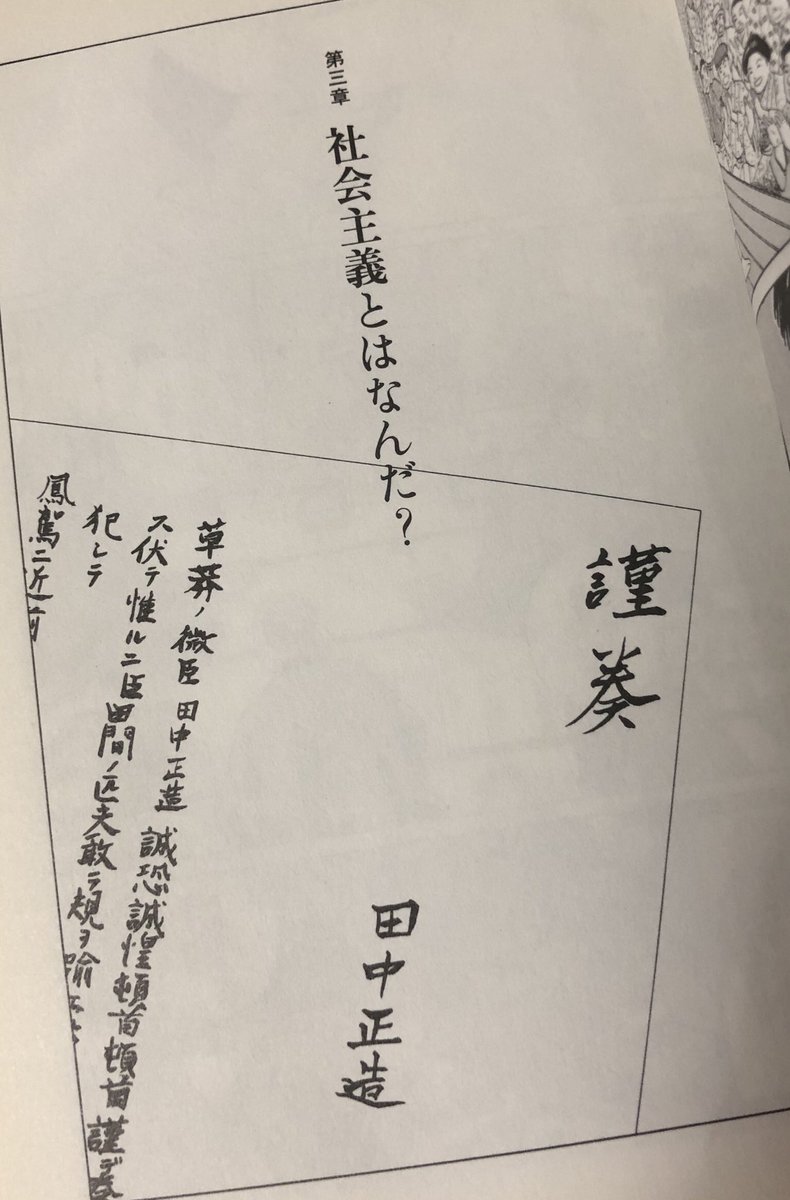 第三章
社会主義とはなんだ?
謹奏
田中正造
草莽ノ微臣田中正造誠恐誠惶頓首頓首謹デ奏
ス伏テ惟ルニ臣田間ノ匹夫敢テ規ヲ踰
犯シテ
鳳駕ニ近前